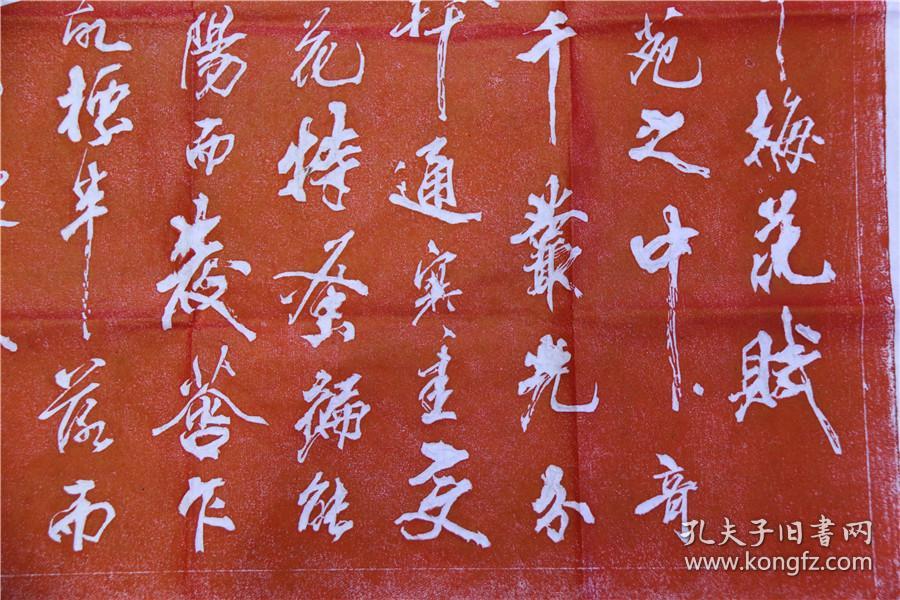 梅花賦
苑之中音
千叢光分
通寒圭変
花特蚤偏能
陽而發萏乍
標半落而
孔夫子旧書网
www.kongfz.com